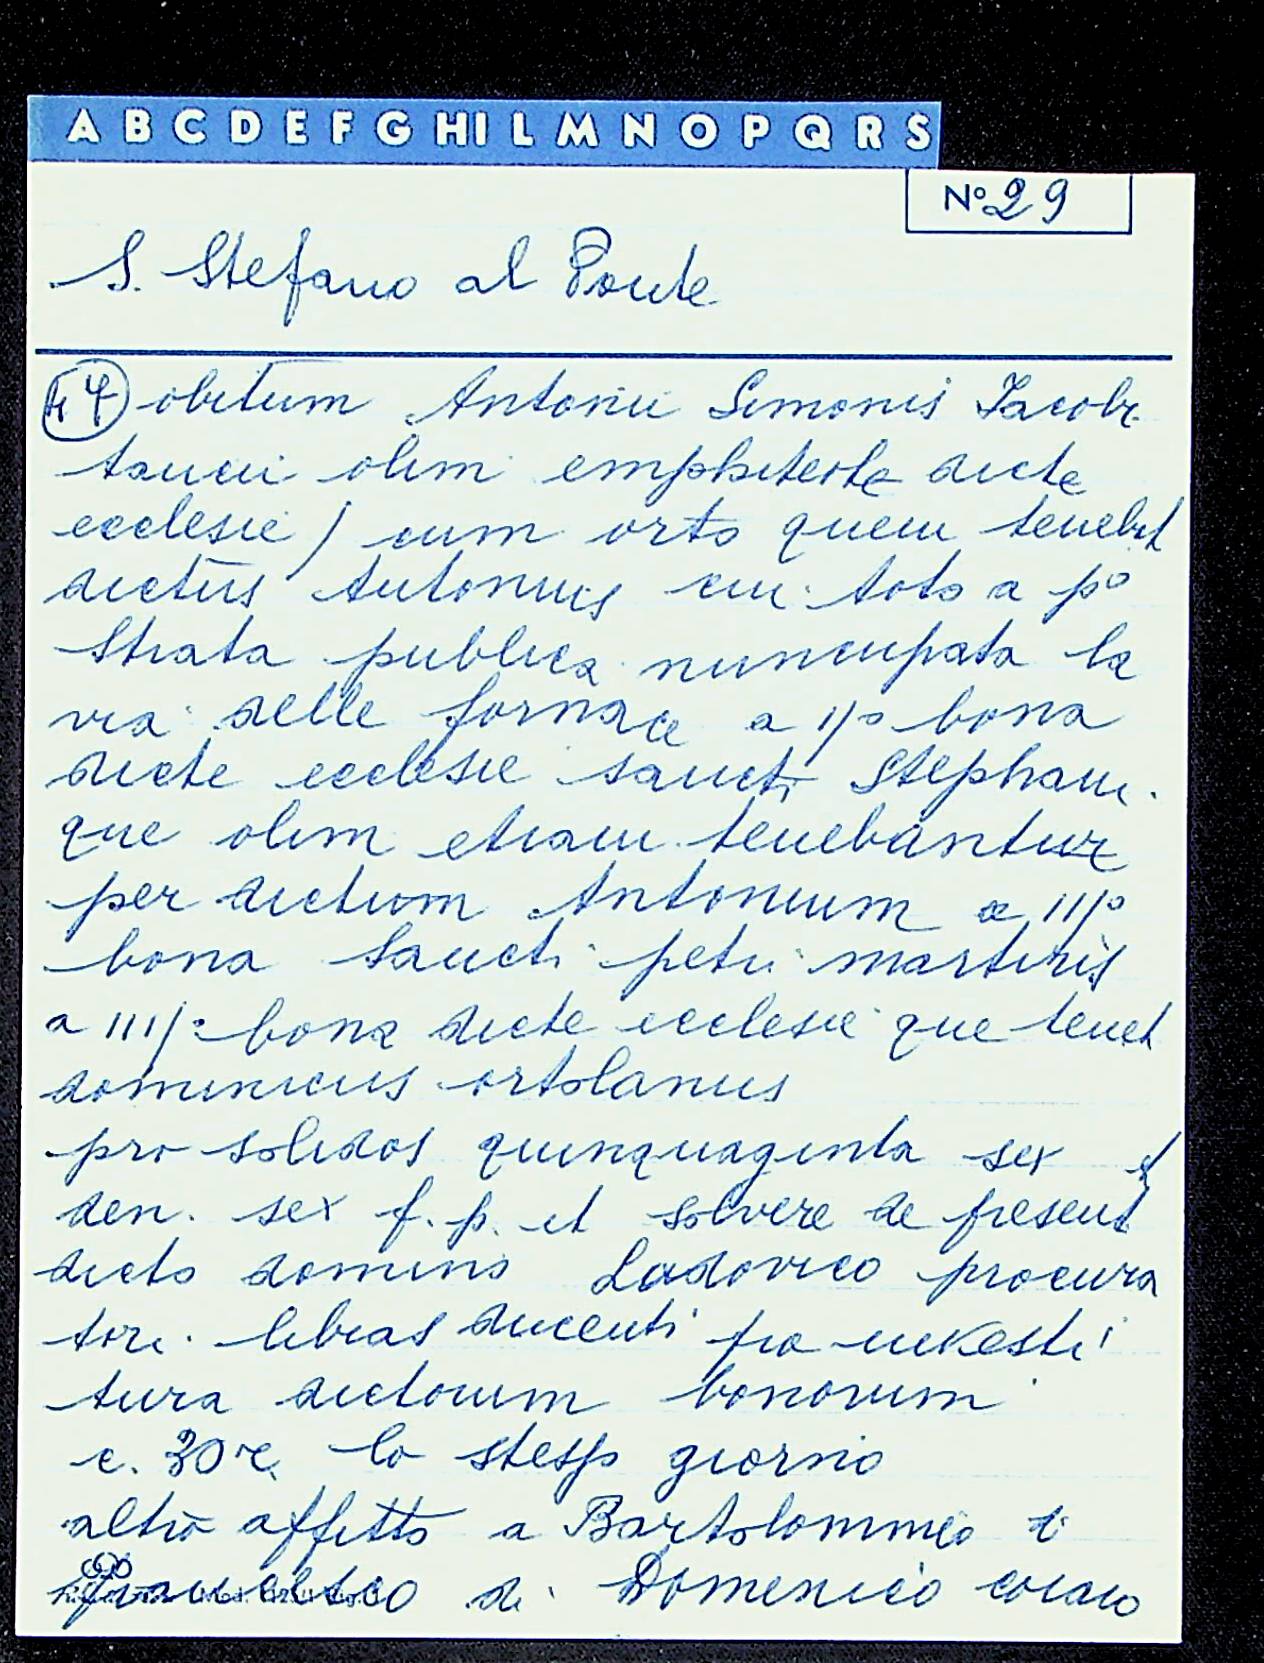 A B C D E F G HI L M N O P Q R S
N° 29
S. Stefano al Ponte
obitum Antonii Simonis Iacobi
olim emphiteote dicte
ecclesie / cum orto quem tenebat
dictus Antonius cui toto a p°
strata publica nuncupata la
via delle fornace a II/° bona
dicte ecclesie sancti Stephani
que olim etiam tenebantur
per dictum Antonium a III/°
bona Sancti petri martiris
a IIII/° bona dicte ecclesie que tenet
dominicus ortolanus
pro solidos quinquaginta sex et
den. sex f. p. et solvere de presenti
dicto domino Ludovico procura
tori libras ducenti pro investi
tura dictorum bonorum
c. 30 r. lo stesso giorno
altro affitto a Bartolommeo e
Francesco di Domenico